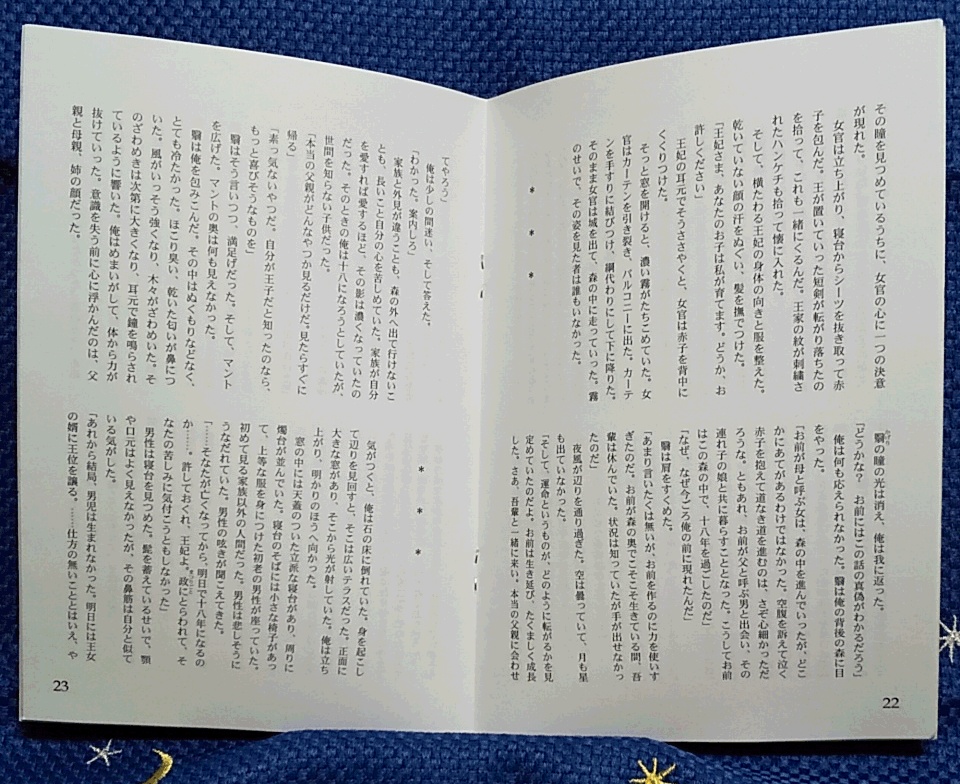 その瞳を見つめているうちに、女官の心に一つの決意
が現れた。
女官は立ち上がり、寝台からシーツを抜き取って赤
子を包んだ。王が置いていった短剣が転がり落ちたの
を拾って、これも一緒にくるんだ。王家の紋が刺繍さ
れたハンケチも拾って懐に入れた。
そして、横たわる王妃の身体の向きと服を整えた。
乾いていない顔の汗をぬぐい、髪を撫でつけた。
「王妃さま、あなたのお子は私が育てます。どうか、お
許しください」
王妃の耳元でそうささやくと、女官は赤子を背中に
くくりつけた。
そっと窓を開けると、濃い霧がたちこめていた。女
官はカーテンを引き裂き、バルコニーに出た。カーテ
ンを手すりに結びつけ、綱代わりにして下に降りた。
そのまま女官は城を出て、森の中に走っていった。霧
のせいで、その姿を見た者は誰もいなかった。
* * *
翳の瞳の光は消え、俺は我に返った。
「どうかな? お前にはこの話の真偽がわかるだろう」
俺は何も応えられなかった。翳は俺の背後の森に目
をやった。
「お前が母と呼ぶ女は、森の中を進んでいったが、どこ
かにあてがあるわけではなかった。空腹を訴えて泣く
赤子を抱えて道なき道を進むのは、さぞ心細かっただ
ろうな。ともあれ、お前が父と呼ぶ男と出会い、その
連れ子の娘と共に暮らすこととなった。こうしてお前
はこの森の中で、十八年を過ごしたのだ」
「なぜ、なぜ今ごろ俺の前に現れたんだ」
翳は肩をすくめた。
「あまり言いたくは無いが、お前を作るのに力を使いす
ぎたのだ。お前が森の奥でこそこそ生きている間、吾
輩は休んでいた。状況は知っていたが手が出せなかっ
たのだ」
夜風が辺りを通り過ぎた。空は曇っていて、月も星
も出ていなかった。
「そして、運命というものが、どのように転がるかを見
定めていたのだよ。お前は生き延び、たくましく成長
した。さあ、吾輩と一緒に来い。本当の父親に会わせ
22
てやろう」
俺は少しの間迷い、そして答えた。
「わかった。案内しろ」
家族と外見が違うことも、森の外へ出て行けないこ
とも、長いこと自分の心を苦しめていた。家族が自分
を愛すれば愛するほど、その影は濃くなっていたの
だった。そのときの俺は十八になろうとしていたが、
世間を知らない子供だった。
「本当の父親がどんなやつか見るだけだ。見たらすぐに
帰る」
「素っ気ないやつだ。自分が王子だと知ったのなら、
もっと喜びそうなものを」
翳はそう言いつつ、満足げだった。そして、マント
を広げた。マントの奥は何も見えなかった。
翳は俺を包みこんだ。その中はぬくもりなどなく、
とても冷たかった。ほこり臭い、乾いた匂いが鼻につ
いた。風がいっそう強くなり、木々がざわめいた。そ
のざわめきは次第に大きくなり、耳元で鐘を鳴らされ
ているように響いた。俺はめまいがして、体から力が
抜けていった。意識を失う前に心に浮かんだのは、父
親と母親、姉の顔だった。
* * *
気がつくと、俺は石の床に倒れていた。身を起こし
て辺りを見回すと、そこは広いテラスだった。正面に
大きな窓があり、そこから光が射していた。俺は立ち
上がり、明かりのほうへ向かった。
窓の中には天蓋のついた立派な寝台があり、周りに
燭台が並んでいた。寝台のそばには小さな椅子があっ
て、上等な服を身につけた初老の男性が座っていた。
初めて見る家族以外の人間だった。男性は悲しそうに
うなだれていた。男性の呟きが聞こえてきた。
「……そなたが亡くなってから、明日で十八年になるの
か……。許しておくれ、王妃よ。政にとらわれて、そ
なたの苦しみに気付こうともしなかった」
男性は寝台を見つめた。髭を蓄えているせいで、顎
や口元はよく見えなかったが、その鼻筋は自分と似て
いる気がした。
「あれから結局、男児は生まれなかった。明日には王女
の婿に王位を譲る。……仕方の無いこととはいえ、や
23